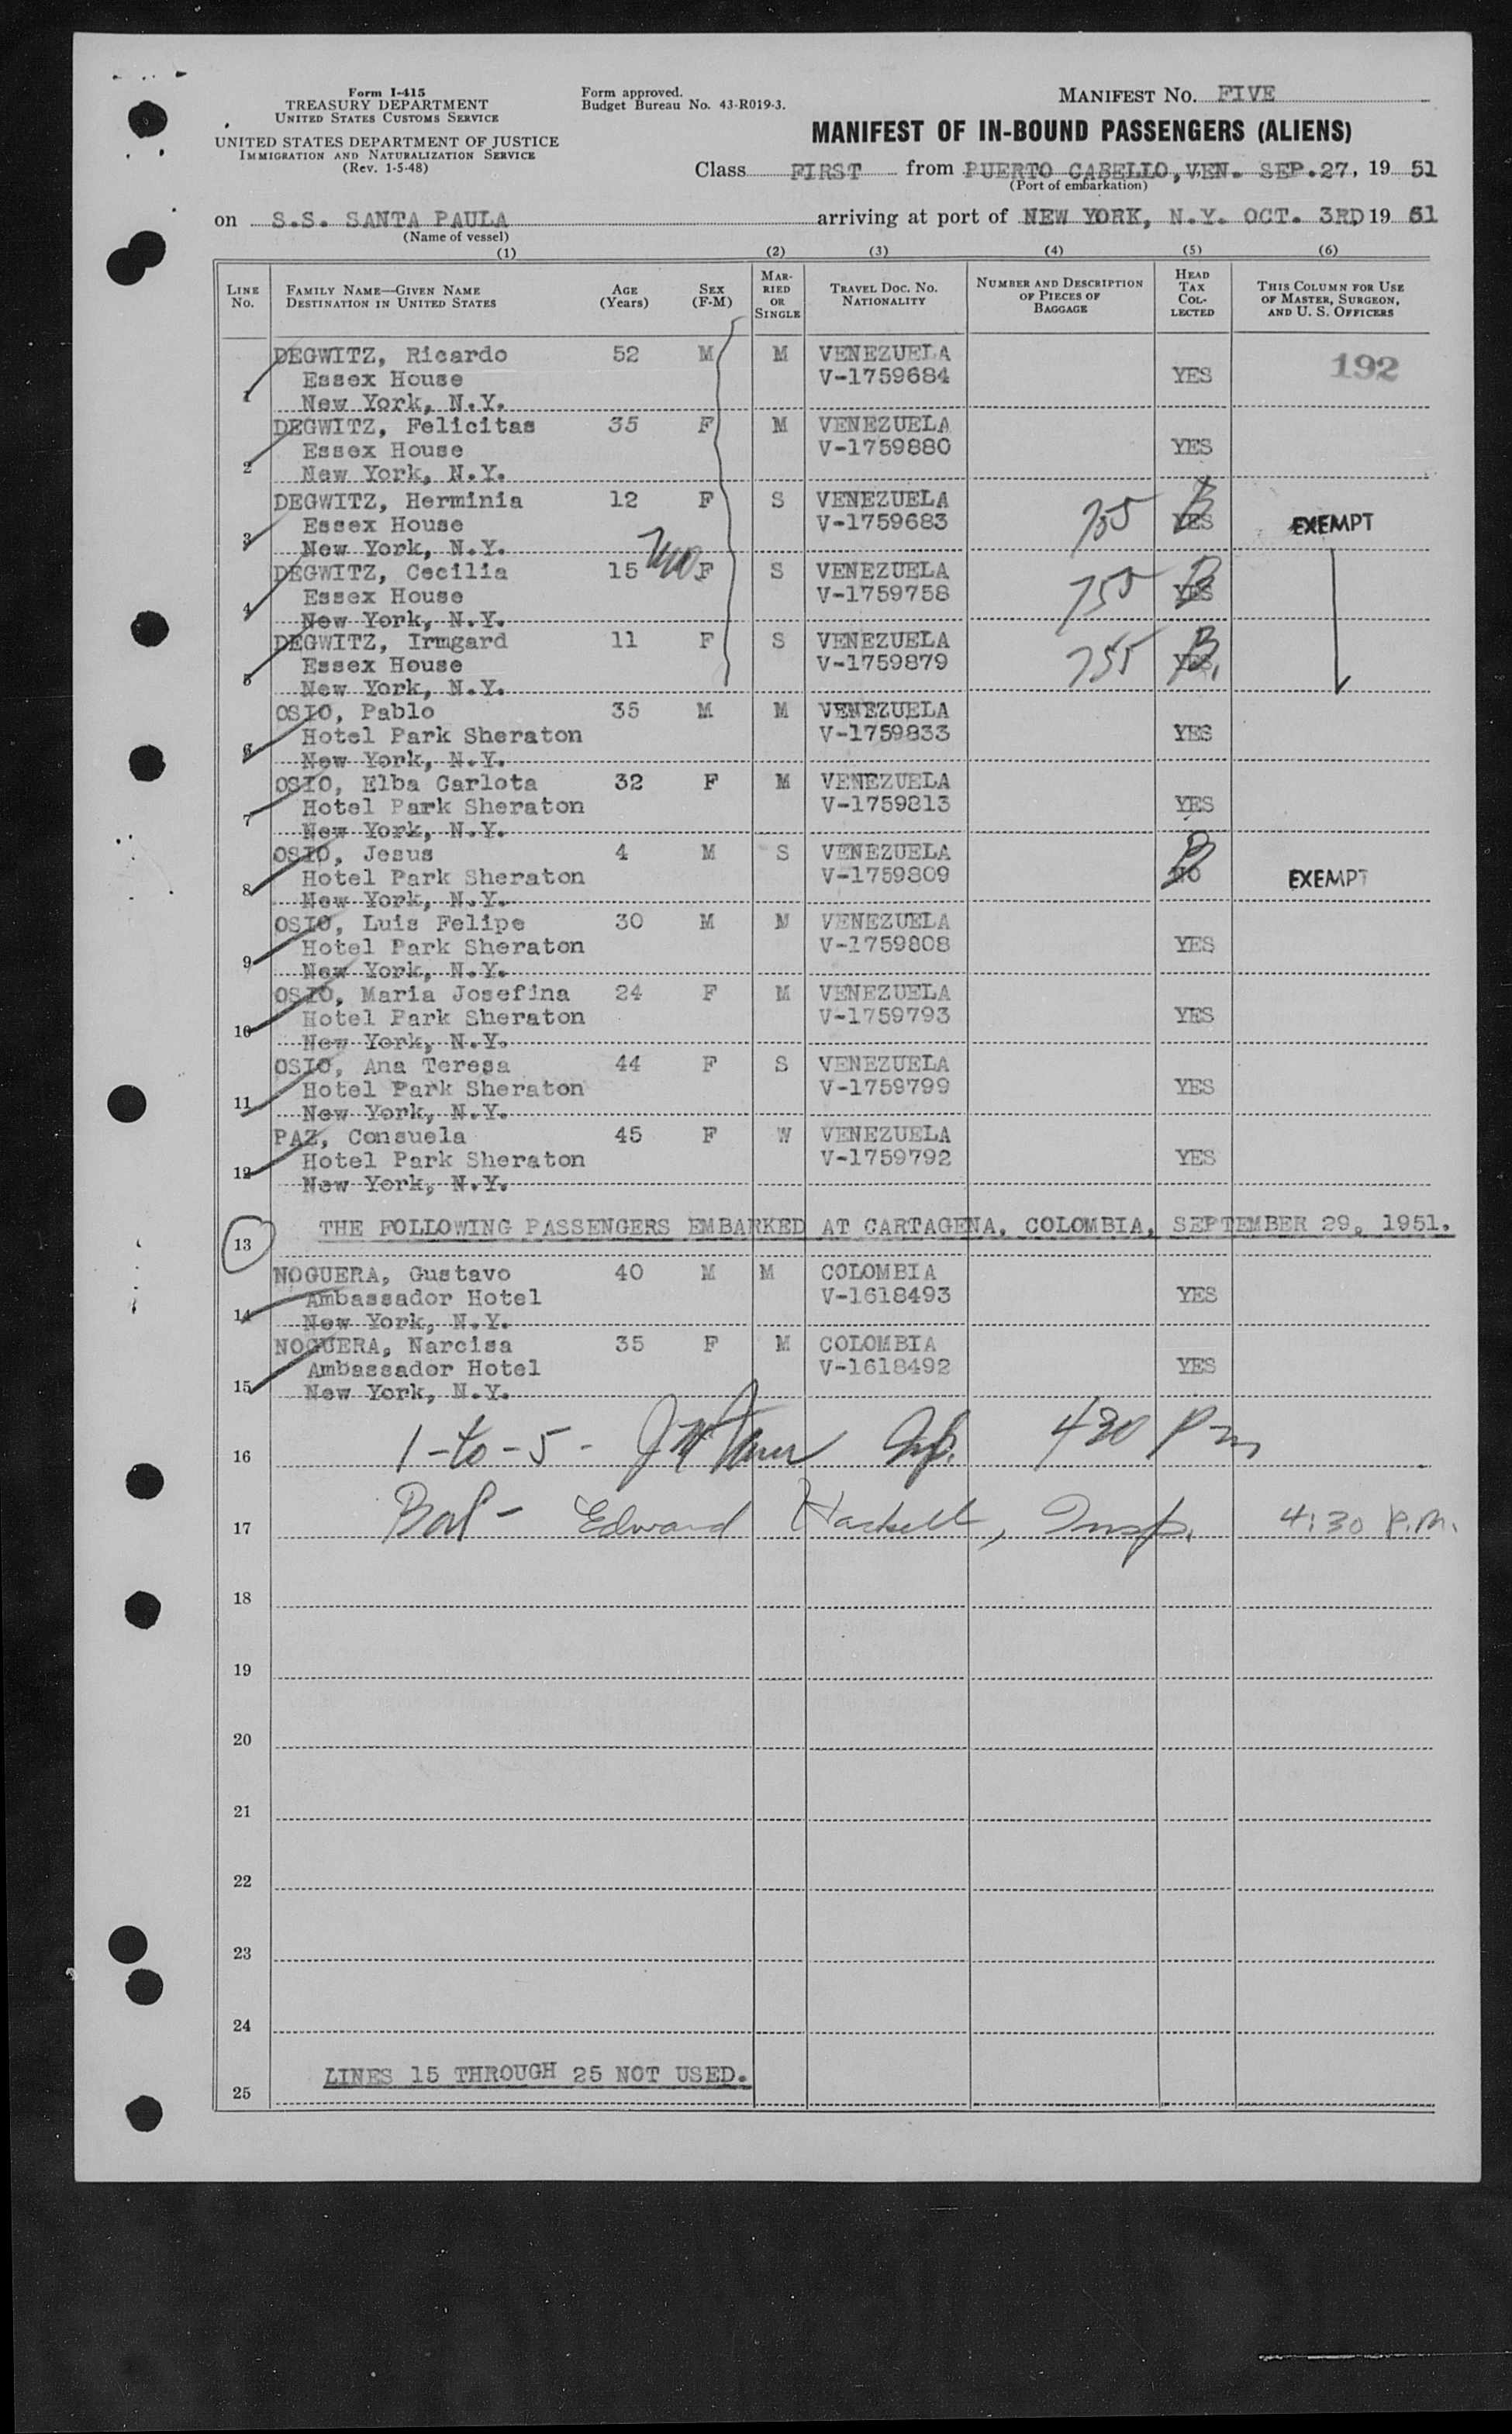 Form I-415
TREASURY DEPARTMENT
UNITED STATES CUSTOMS SERVICE
UNITED STATES DEPARTMENT OF JUSTICE
IMMIGRATION AND NATURALIZATION SERVICE
(Rev. 1-5-48)
Form approved.
Budget Bureau No. 43-R019-3.
MANIFEST NO. FIVE
MANIFEST OF IN-BOUND PASSENGERS (ALIENS)
Class FIRST from PUERTO CABELLO, VEN. SEP. 27, 19 51
(Port of embarkation)
on S.S. SANTA PAULA arriving at port of NEW YORK, N.Y. OCT. 3RD 19 51
(Name of vessel)
(1) (2) (3) (4) (5) (6)
LINE NO. FAMILY NAME—GIVEN NAME DESTINATION IN UNITED STATES AGE (Years) SEX (F-M) MARRIED OR SINGLE TRAVEL DOC. NO. NATIONALITY NUMBER AND DESCRIPTION OF PIECES OF BAGGAGE HEAD TAX COLLECTED THIS COLUMN FOR USE OF MASTER, SURGEON, AND U. S. OFFICERS
DEGWITZ, Ricardo 52 M M VENEZUELA 192
Essex House V-1759684 YES
1 New York, N.Y.
DEGWITZ, Felicitas 35 F M VENEZUELA
Essex House V-1759880 YES
2 New York, N.Y.
DEGWITZ, Herminia 12 F S VENEZUELA
Essex House V-1759683 755 YES EXEMPT
3 New York, N.Y.
DEGWITZ, Cecilia 15 F S VENEZUELA
Essex House V-1759758 755 YES
4 New York, N.Y.
DEGWITZ, Irmgard 11 F S VENEZUELA
Essex House V-1759879 755 YES
5 New York, N.Y.
OSIO, Pablo 35 M M VENEZUELA
Hotel Park Sheraton V-1759833 YES
6 New York, N.Y.
OSIO, Elba Carlota 32 F M VENEZUELA
Hotel Park Sheraton V-1759813 YES
7 New York, N.Y.
OSIO, Jesus 4 M S VENEZUELA
Hotel Park Sheraton V-1759809 NO EXEMPT
8 New York, N.Y.
OSIO, Luis Felipe 30 M M VENEZUELA
Hotel Park Sheraton V-1759808 YES
9 New York, N.Y.
OSIO, Maria Josefina 24 F M VENEZUELA
Hotel Park Sheraton V-1759793 YES
10 New York, N.Y.
OSIO, Ana Teresa 44 F S VENEZUELA
Hotel Park Sheraton V-1759799 YES
11 New York, N.Y.
PAZ, Consuela 45 F W VENEZUELA
Hotel Park Sheraton V-1759792 YES
12 New York, N.Y.
13 THE FOLLOWING PASSENGERS EMBARKED AT CARTAGENA, COLOMBIA, SEPTEMBER 29, 1951.
NOGUERA, Gustavo 40 M M COLOMBIA
Ambassador Hotel V-1618493 YES
14 New York, N.Y.
NOGUERA, Narcisa 35 F M COLOMBIA
Ambassador Hotel V-1618492 YES
15 New York, N.Y.
16 1-to-5- Insp. 430 Pm
17 Bal- Edward Haskell, Insp. 4:30 P.M.
18
19
20
21
22
23
24
LINES 15 THROUGH 25 NOT USED.
25